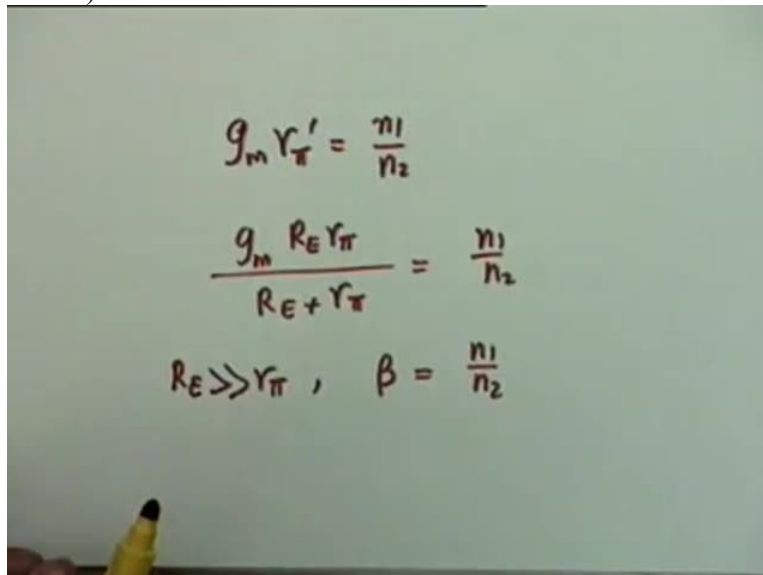 g_m r_π' = n_1/n_2
g_m R_E r_π / R_E + r_π = n_1/n_2
R_E >> r_π , β = n_1/n_2